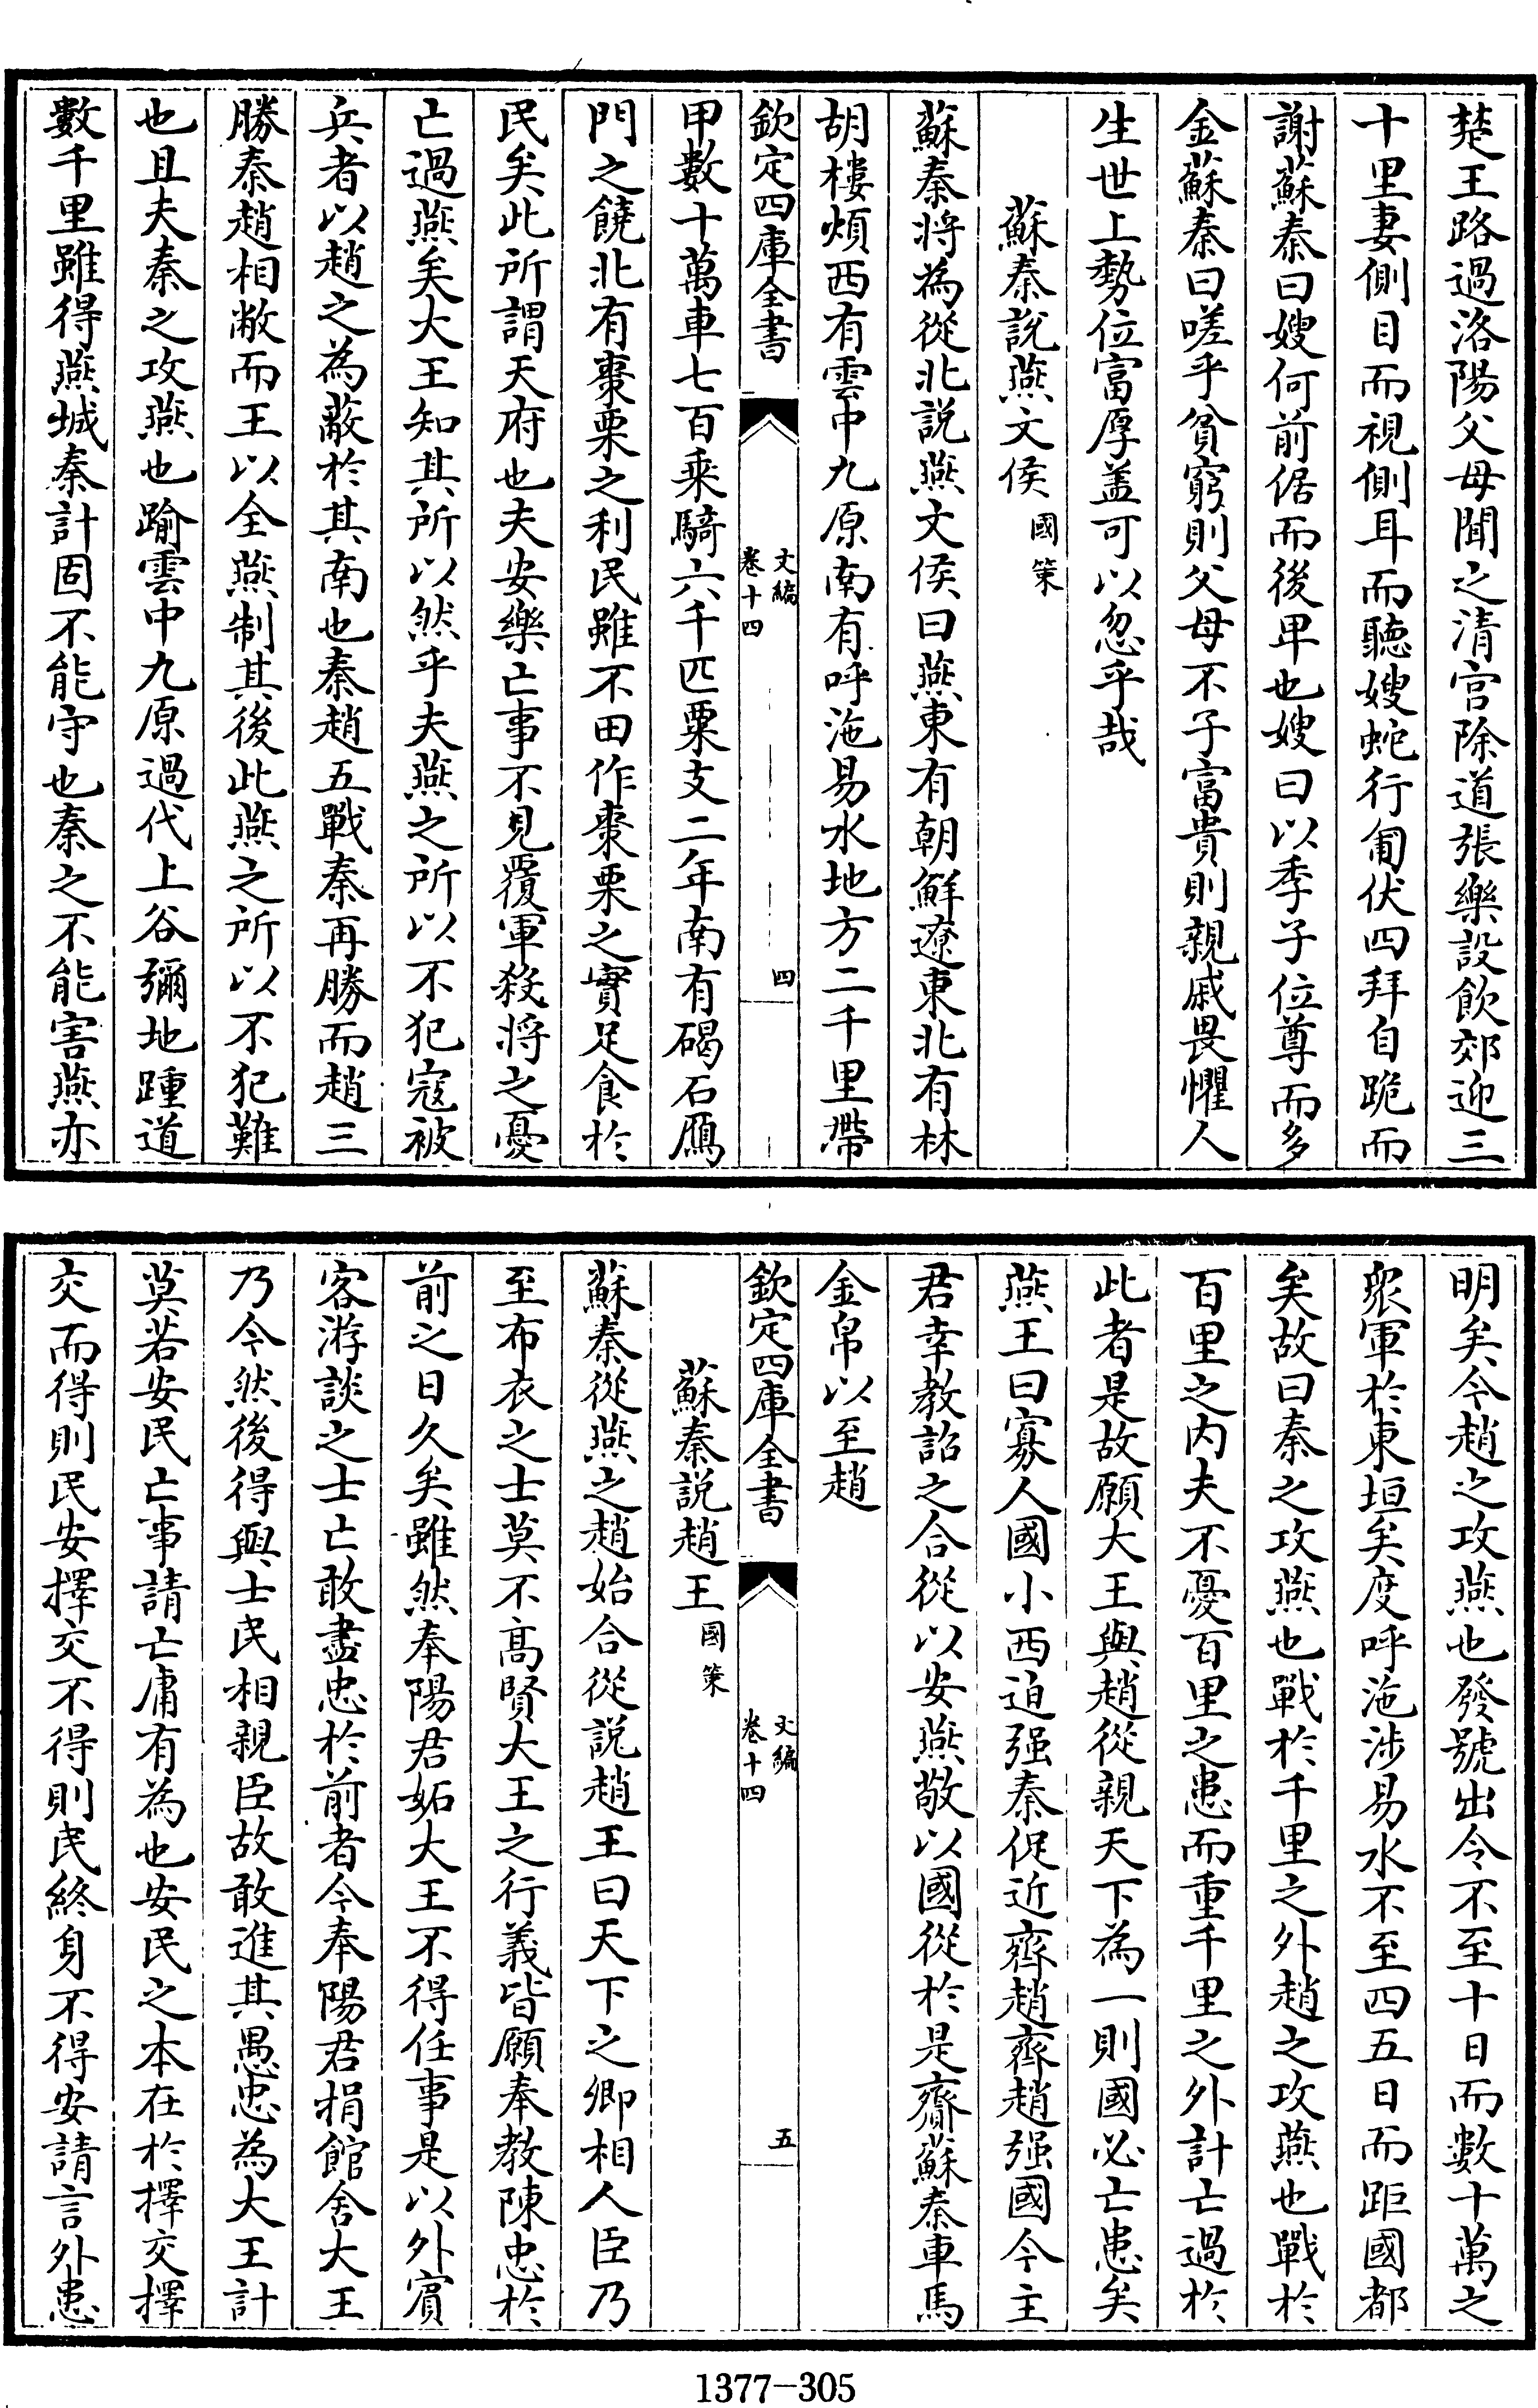 楚王路過洛陽父母聞之清宫除道張樂設飲郊迎三
十里妻側目而視側耳而聽嫂蛇行匍伏四拜自跪而
謝蘇秦曰嫂何前倨而後卑也嫂曰以季子位尊而多
金蘇秦曰嗟乎貧窮則父母不子富貴則親戚畏懼人
生世上勢位富厚盖可以忽乎哉
蘇秦説燕文侯國策
蘇秦將為從北説燕文侯曰燕東有朝鮮遼東北有林
胡樓煩西有雲中九原南有呼沲易水地方二千里帶
欽定四庫全書 文編卷十四 四
甲數十萬車七百乘騎六千匹粟支二年南有碣石鴈
門之饒北有棗栗之利民雖不田作棗栗之實足食於
民矣此所謂天府也夫安樂亡事不見覆軍殺將之憂
亡過燕矣大王知其所以然乎夫燕之所以不犯寇被
兵者以趙之為蔽於其南也秦趙五戰秦再勝而趙三
勝秦趙相敝而王以全燕制其後此燕之所以不犯難
也且夫秦之攻燕也踰雲中九原過代上谷彌地踵道
數千里雖得燕城秦計固不能守也秦之不能害燕亦
明矣今趙之攻燕也發號出令不至十日而數十萬之
衆軍於東垣矣度呼沲涉易水不至四五日而距國都
矣故曰秦之攻燕也戰於千里之外趙之攻燕也戰於
百里之内夫不憂百里之患而重千里之外計亡過於
此者是故願大王與趙從親天下為一則國必亡患矣
燕王曰寡人國小西迫强秦促近齊趙齊趙强國今主
君幸教詔之合從以安燕敬以國從於是齎蘇秦車馬
金帛以至趙
欽定四庫全書 文編卷十四 五
蘇秦説趙王國策
蘇秦從燕之趙始合從説趙王曰天下之卿相人臣乃
至布衣之士莫不髙賢大王之行義皆願奉教陳忠於
前之日久矣雖然奉陽君妬大王不得任事是以外賓
客游談之士亡敢盡忠於前者今奉陽君捐館舍大王
乃今然後得與士民相親臣故敢進其愚忠為大王計
莫若安民亡事請亡庸有為也安民之本在於擇交擇
交而得則民安擇交不得則民終身不得安請言外患
1377-305